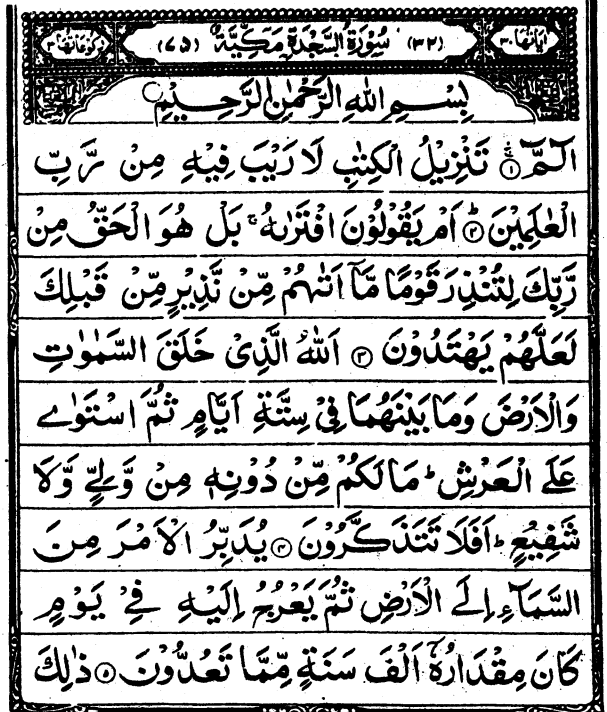 اٰیَاتُهَا ۳۰ (۳۲) سُوْرَةُ السَّجْدَةِ مَكِّیَّةٌ (۷۵) رُكُوْعَاتُهَا ۳
بِسْمِ اللّٰهِ الرَّحْمٰنِ الرَّحِیْمِ
الٓمّٓ ۚ﴿۱﴾ تَنْزِیْلُ الْكِتٰبِ لَا رَیْبَ فِیْهِ مِنْ رَّبِّ
الْعٰلَمِیْنَ ؕ﴿۲﴾ اَمْ یَقُوْلُوْنَ افْتَرٰىهُ ۚ بَلْ هُوَ الْحَقُّ مِنْ
رَّبِّكَ لِتُنْذِرَ قَوْمًا مَّاۤ اَتٰىهُمْ مِّنْ نَّذِیْرٍ مِّنْ قَبْلِكَ
لَعَلَّهُمْ یَهْتَدُوْنَ ﴿۳﴾ اَللّٰهُ الَّذِیْ خَلَقَ السَّمٰوٰتِ
وَالْاَرْضَ وَمَا بَیْنَهُمَا فِیْ سِتَّةِ اَیَّامٍ ثُمَّ اسْتَوٰى
عَلَى الْعَرْشِ ؕ مَا لَكُمْ مِّنْ دُوْنِهٖ مِنْ وَّلِیٍّ وَّلَا
شَفِیْعٍ ؕ اَفَلَا تَتَذَكَّرُوْنَ ﴿۴﴾ یُدَبِّرُ الْاَمْرَ مِنَ
السَّمَآءِ اِلَى الْاَرْضِ ثُمَّ یَعْرُجُ اِلَیْهِ فِیْ یَوْمٍ
كَانَ مِقْدَارُهٗۤ اَلْفَ سَنَةٍ مِّمَّا تَعُدُّوْنَ ﴿۵﴾ ذٰلِكَ